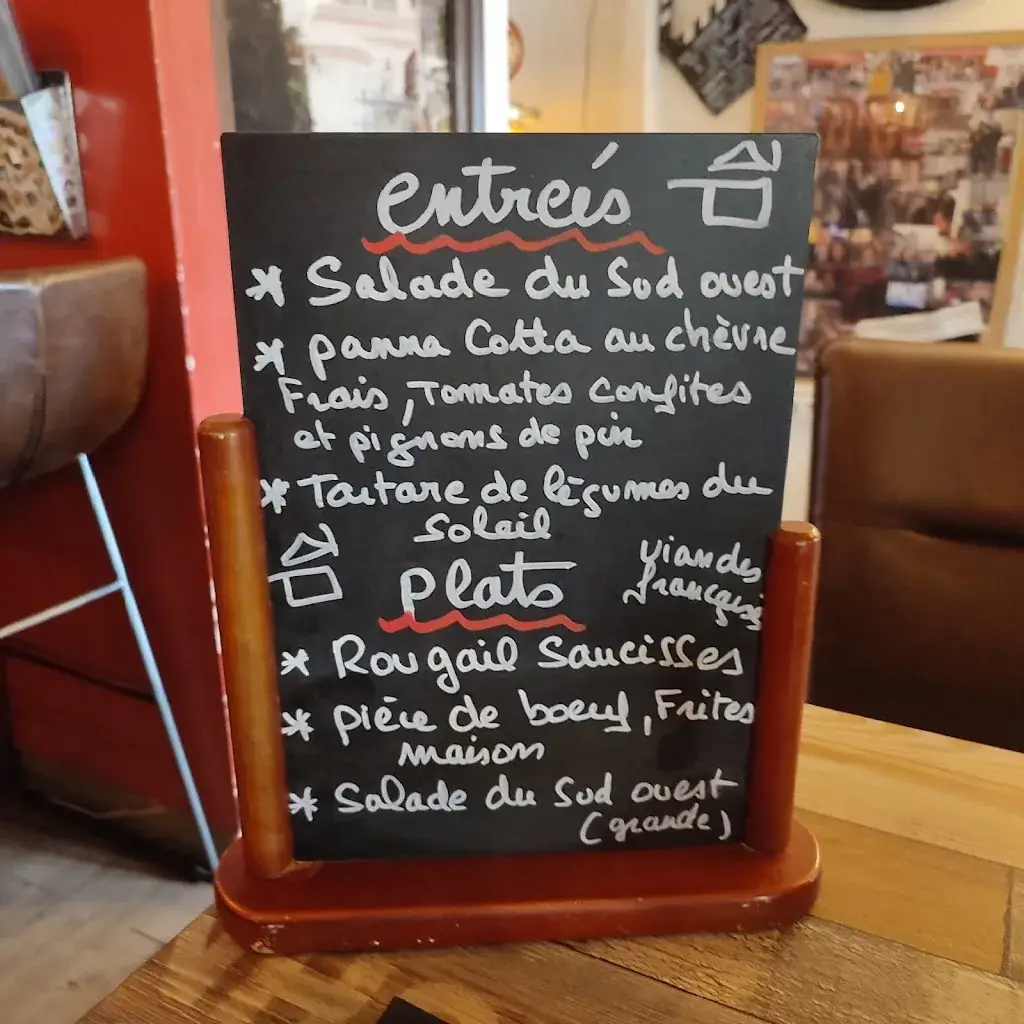 entrées
* Salade du Sud ouest
* panna Cotta au chèvre
Frais, Tomates confites
et pignons de pin
* Tartare de légumes du
soleil
Plats
Viandes
françaises
* Rougail Saucisses
* pièce de boeuf, Frites
maison
* Salade du Sud ouest
(grande)